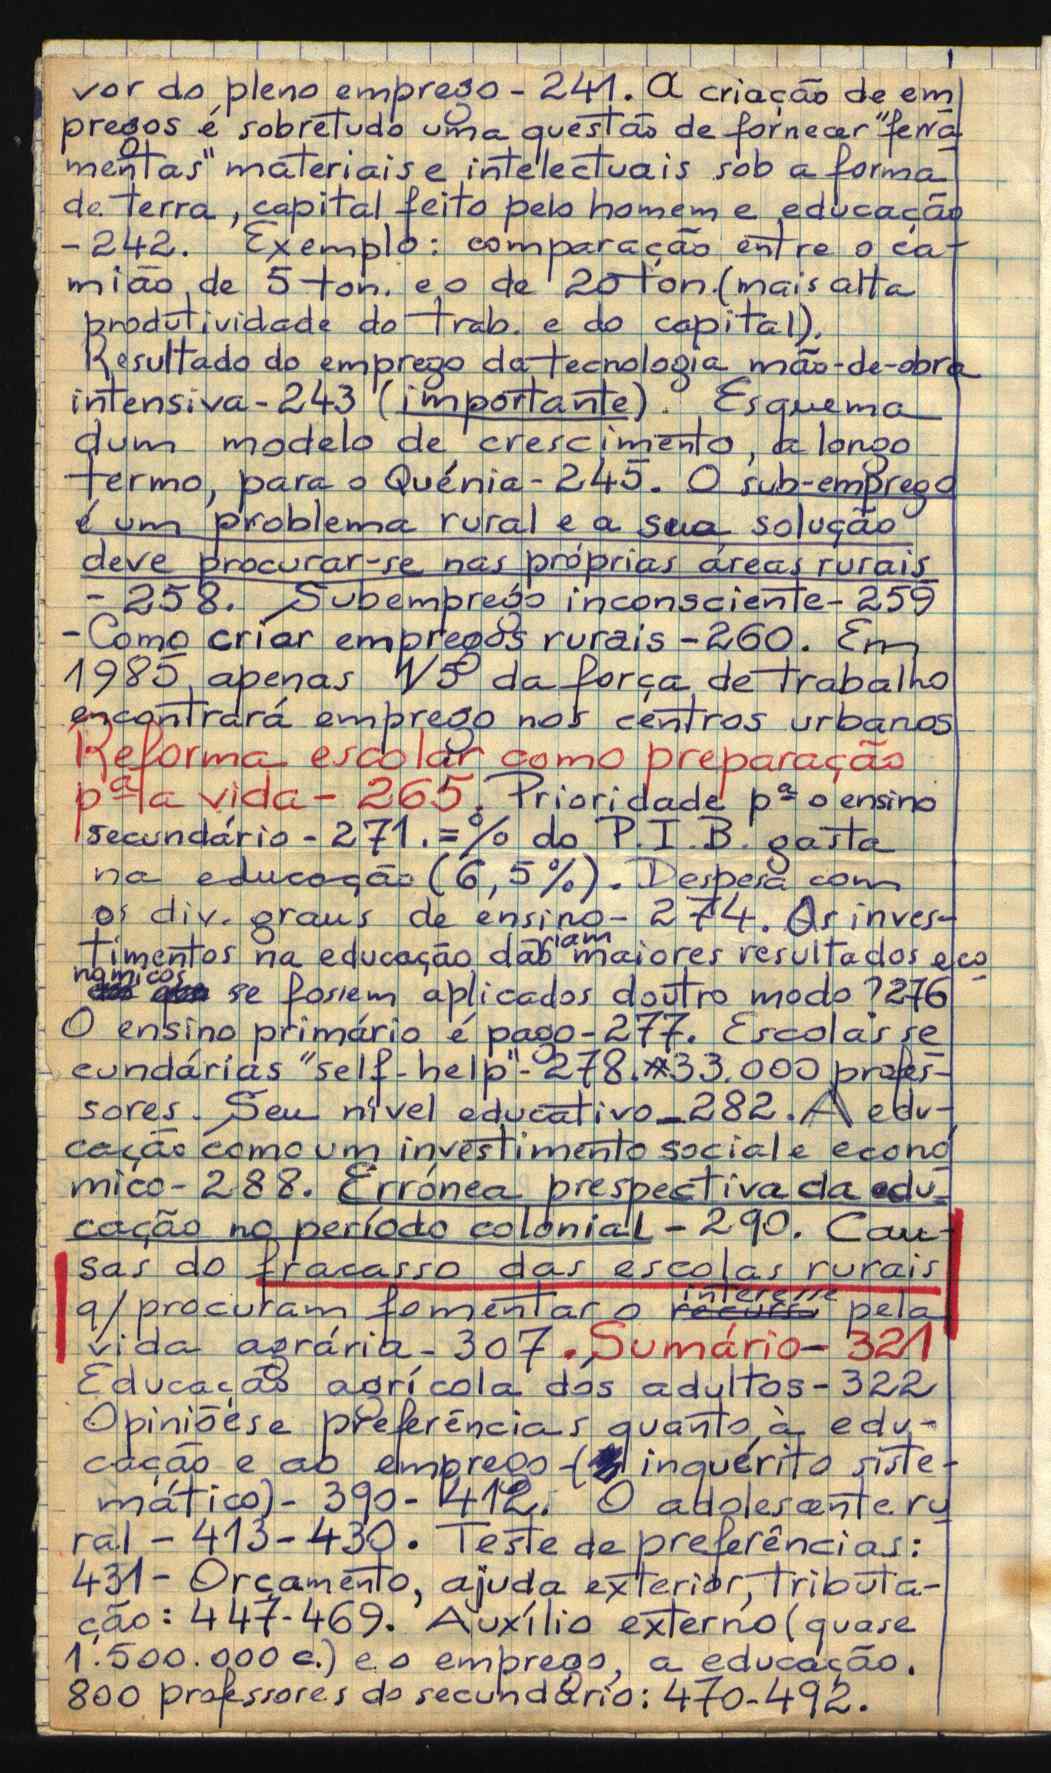 vor do pleno emprego - 241. A criação de em
pregos é sobretudo uma questão de fornecer "ferra
mentas" materiais e intelectuais sob a forma
de terra, capital feito pelo homem e educação
- 242. Exemplo: comparação entre o ca-
mião de 5 ton. e o de 20 ton. (mais alta
produtividade do trab. e do capital).
Resultado do emprego da tecnologia mão-de-obra
intensiva - 243 (importante). Esquema
dum modelo de crescimento, a longo
termo, para o Quénia - 245. O sub-emprego
é um problema rural e a sua solução
deve procurar-se nas próprias áreas rurais
- 258. Subemprego inconsciente - 259
- Como criar empregos rurais - 260. Em
1985 apenas 1/5 da força de trabalho
encontrará emprego nos centros urbanos
Reforma escolar como preparação
pª a vida - 265. Prioridade pª o ensino
secundário - 271. = % do P.I.B. gasta
na educação (6,5%). Despesa com
os div. graus de ensino - 274. Os inves-
timentos na educação dariam maiores resultados eco
nómicos se fossem aplicados doutro modo? 276
O ensino primário é pago - 277. Escolas se
cundárias "self-help" - 278. *33.000 profes-
sores. Seu nível educativo - 282. A edu-
cação como um investimento social e econó
mico - 288. Errónea prespectiva da edu-
cação no período colonial - 290. Cau-
sas do fracasso das escolas rurais
q/ procuram fomentar o interesse pela
vida agrária - 307. Sumário - 321
Educação agrícola dos adultos - 322
Opiniões e preferências quanto à edu-
cação e ao emprego - (inquérito siste-
mático) - 390 - 412. O adolescente ru
ral - 413 - 430. Teste de preferências:
431 - Orçamento, ajuda exterior, tributa-
ção: 447-469. Auxílio externo (quase
1.500.000 c.) e o emprego, a educação.
800 professores do secundário: 470-492.